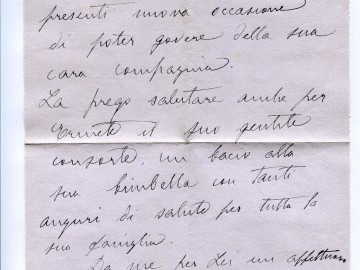 presenti nuova occasione
di poter godere della sua
cara compagnia.
La prego salutare anche per
Ermete il suo gentile
consorte, un bacio alla
sua bimbella con tanti
auguri di salute per tutta la
sua famiglia.
Da me per Lei un affettuoso